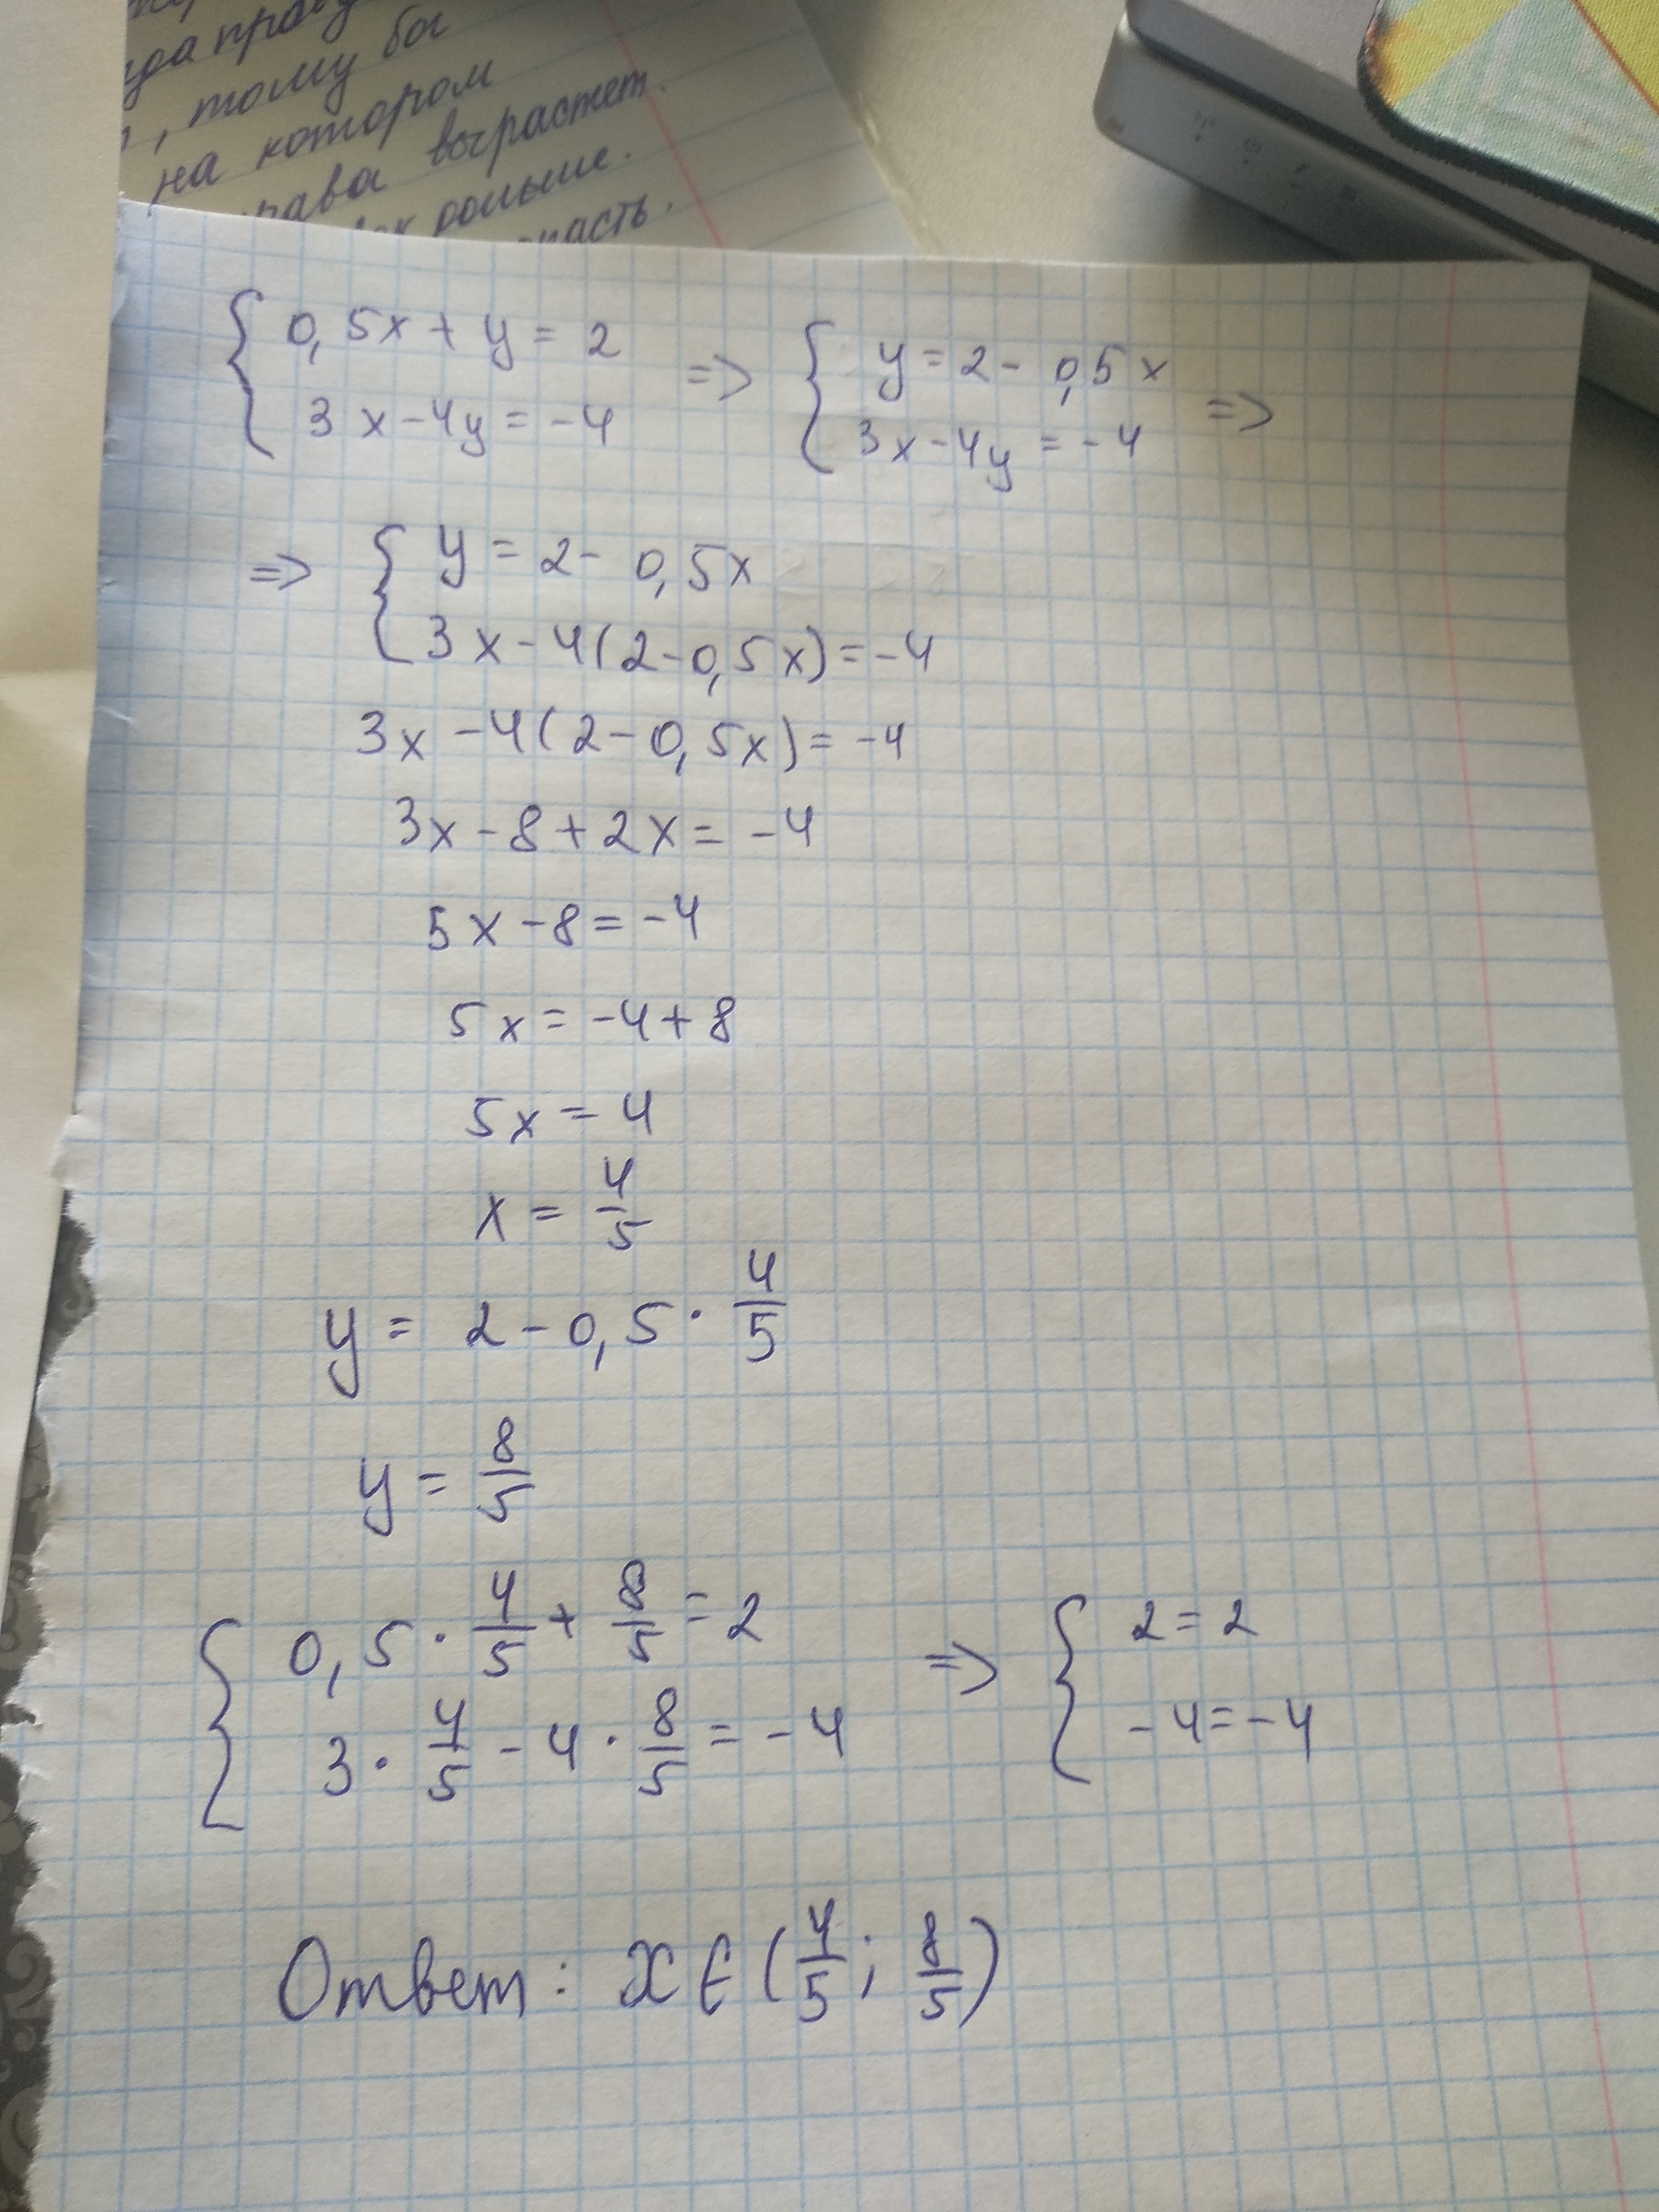 да
, тому бы
на котором
рава вырастет.
больше.
пасть.
{ 0,5x + y = 2 => { y = 2 - 0,5x =>
3x - 4y = -4 3x - 4y = -4
=> { y = 2 - 0,5x
3x - 4(2 - 0,5x) = -4
3x - 4(2 - 0,5x) = -4
3x - 8 + 2x = -4
5x - 8 = -4
5x = -4 + 8
5x = 4
x = 4/5
y = 2 - 0,5 · 4/5
y = 8/5
{ 0,5 · 4/5 + 8/5 = 2 => { 2 = 2
3 · 4/5 - 4 · 8/5 = -4 -4 = -4
Ответ: x ∈ (4/5; 8/5)